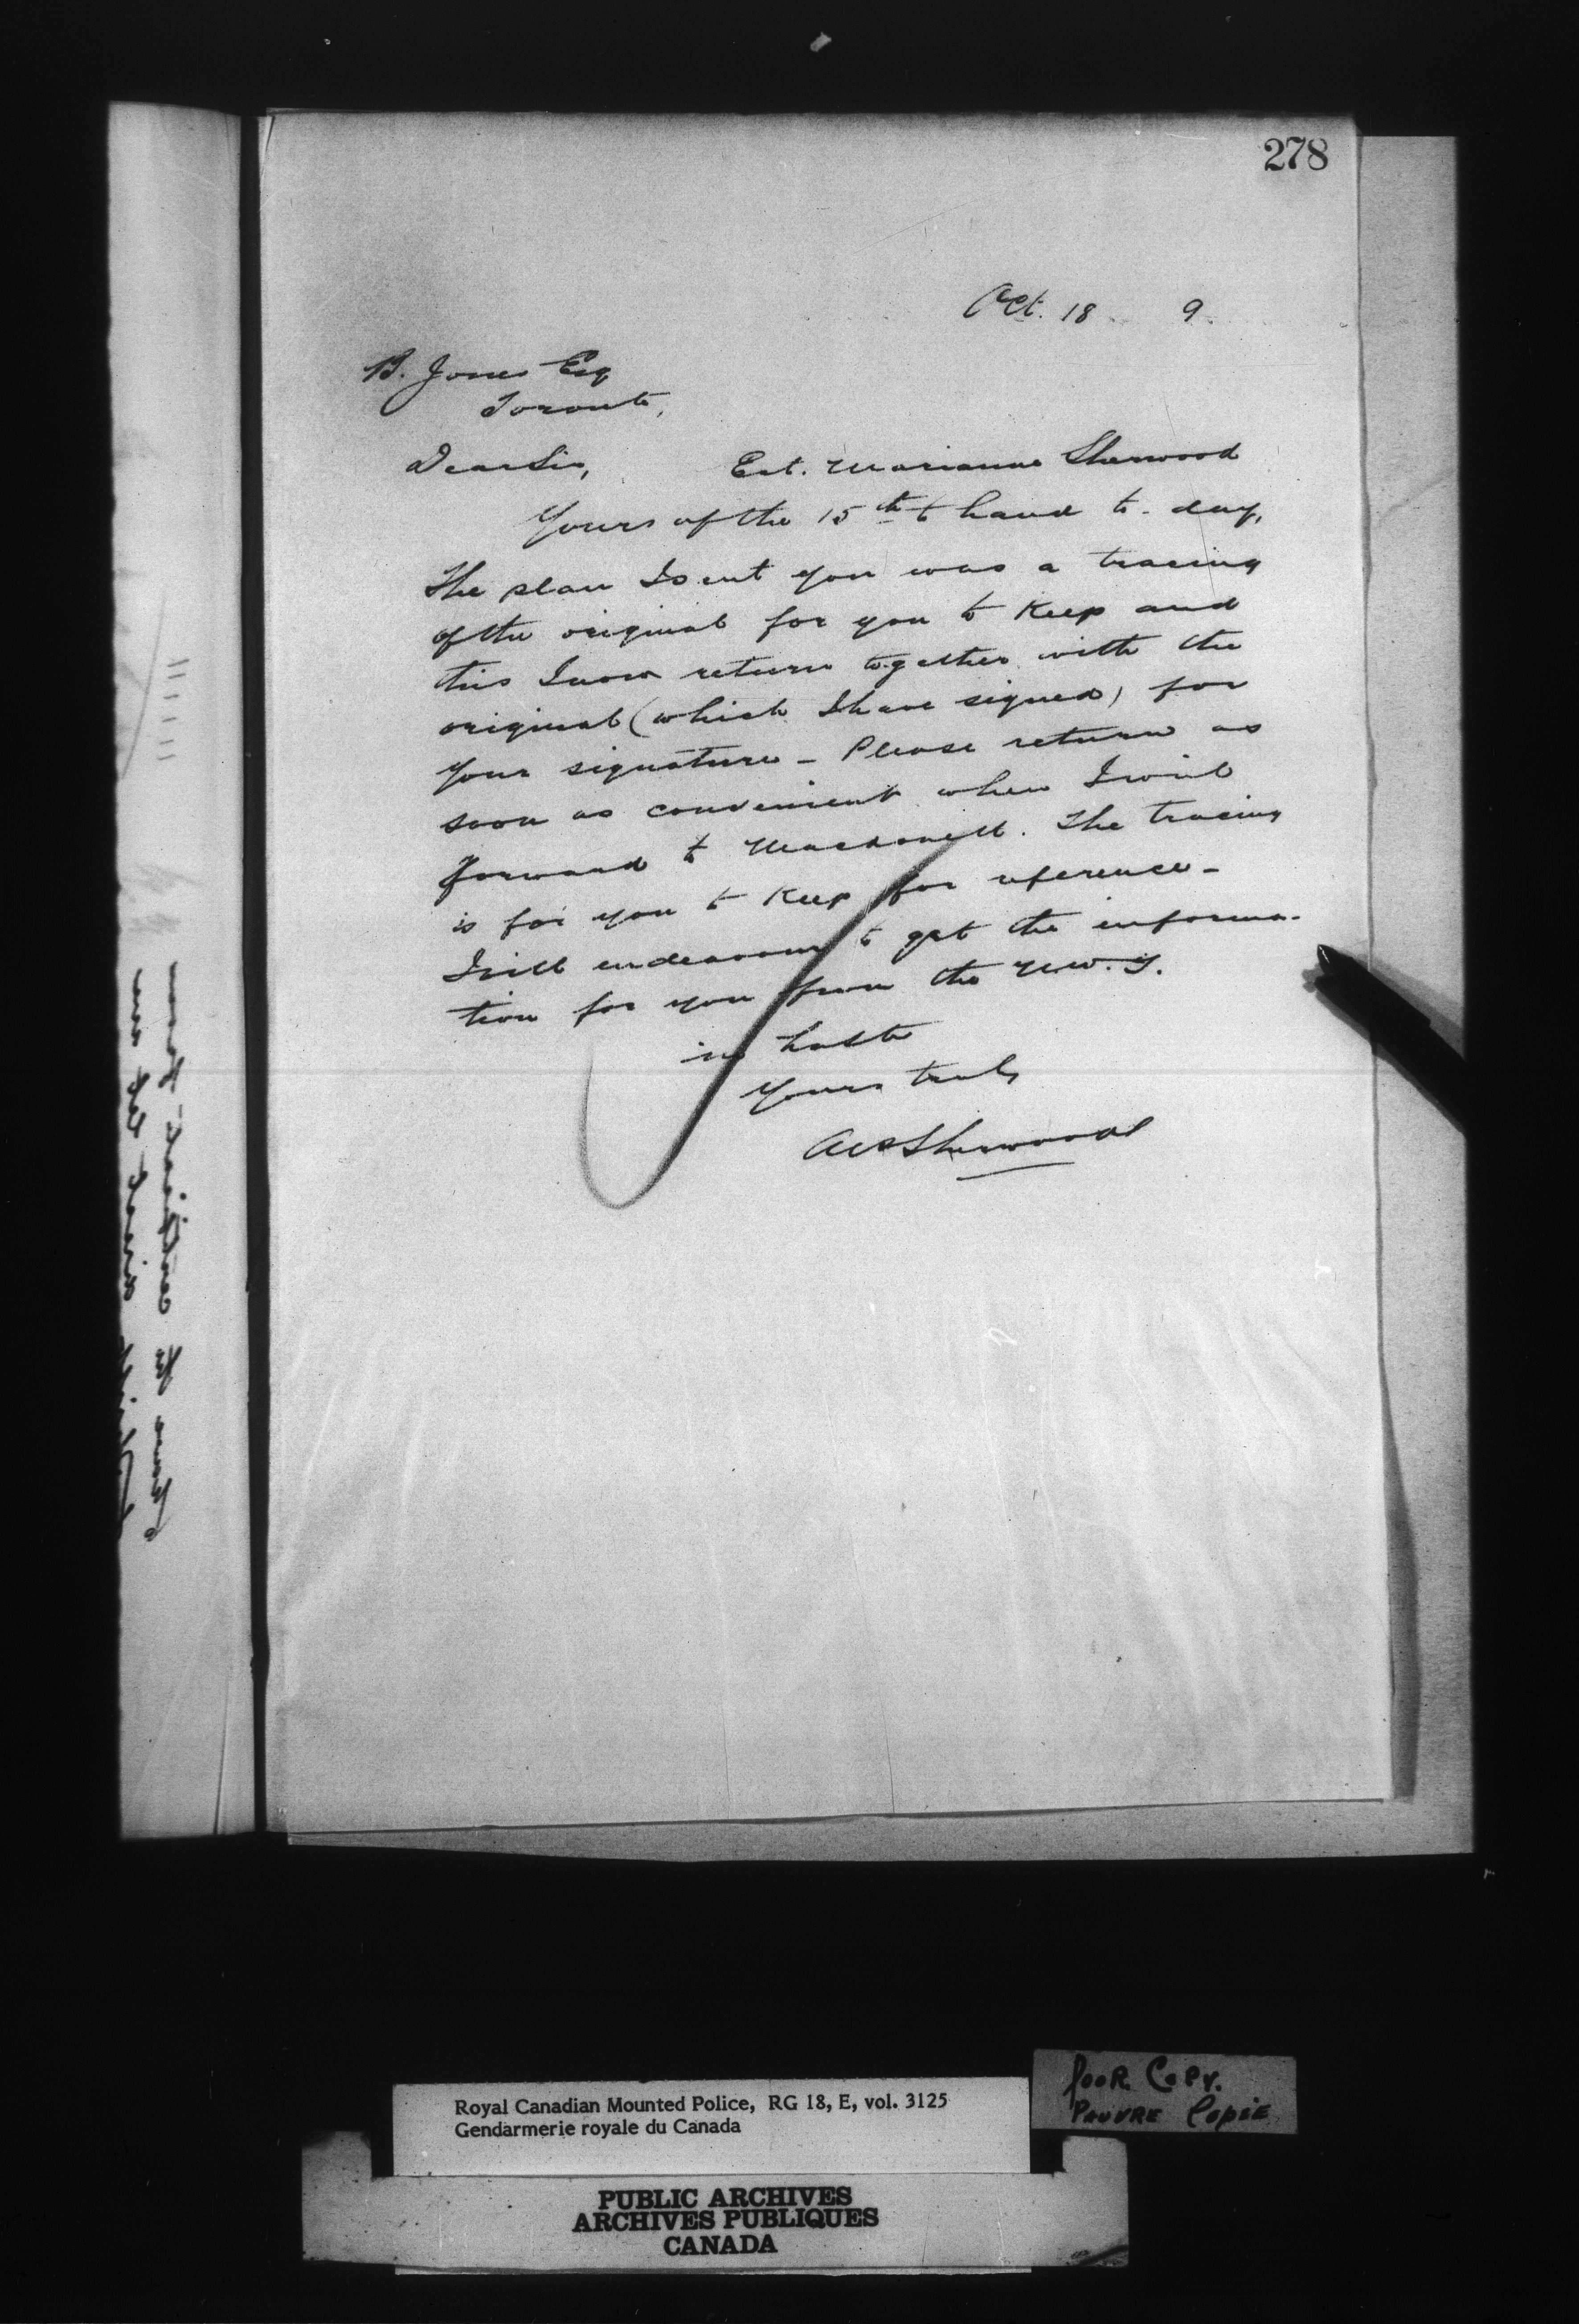 278
Oct. 18 9
B. Jones Esq
Toronto,
Dear Sir, Est. Marianne Sherwood
Yours of the 15th to hand to-day,
The plan I sent you was a tracing
of the original for you to keep and
this I now return together with the
original (which I have signed) for
your signature - Please return as
soon as convenient when I will
forward to Macdonell. The tracing
is for you to keep for reference -
I will endeavour to get the informa-
tion for you from the N.W.T.
in haste
Yours truly
A P Sherwood
Royal Canadian Mounted Police, RG 18, E, vol. 3125
Gendarmerie royale du Canada
POOR COPY.
PAUVRE COPIE
PUBLIC ARCHIVES
ARCHIVES PUBLIQUES
CANADA